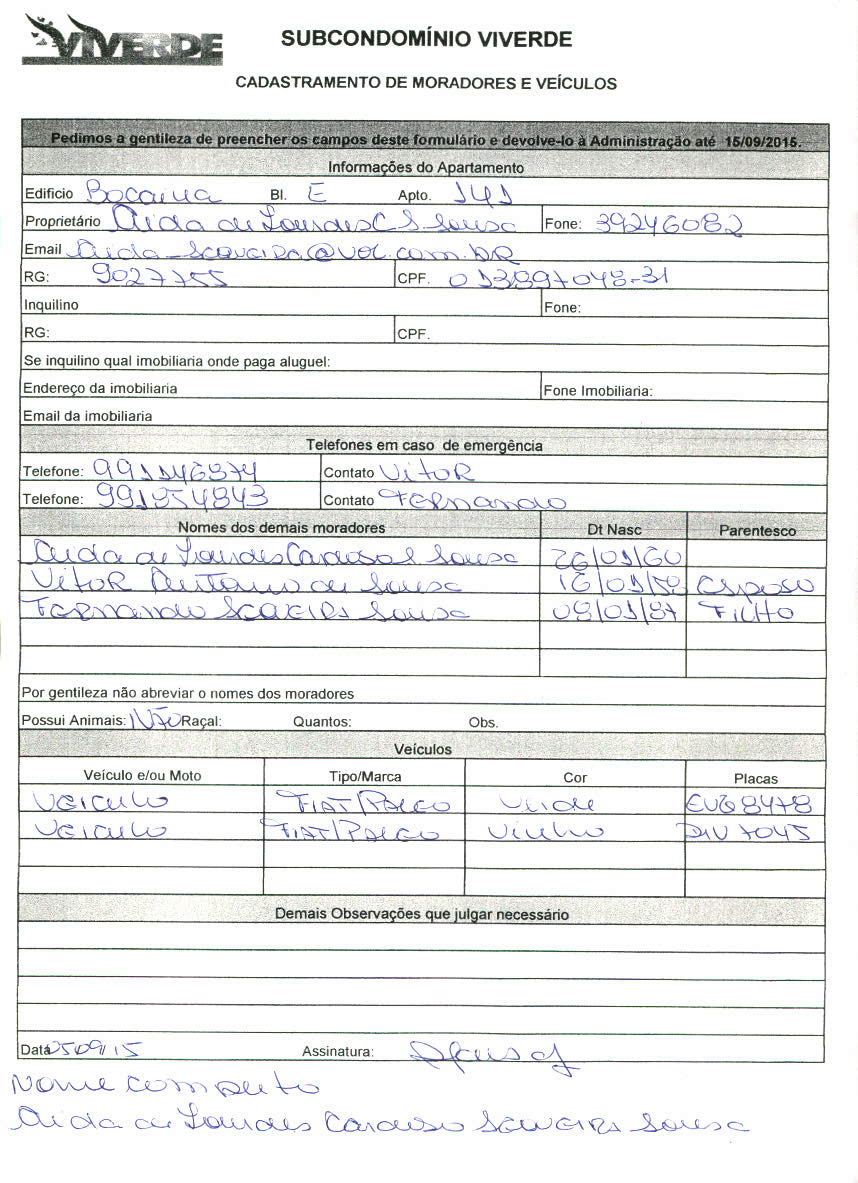 VIVERDE
SUBCONDOMÍNIO VIVERDE
CADASTRAMENTO DE MORADORES E VEÍCULOS
Pedimos a gentileza de preencher os campos deste formulário e devolve-lo à Administração até 15/09/2015.
Informações do Apartamento
Edificio Bocaina Bl. E Apto. 141
Proprietário Aida de Lourdes C S Sousa Fone: 39246082
Email
RG: 9027755 CPF. 013897048-31
Inquilino Fone:
RG: CPF.
Se inquilino qual imobiliaria onde paga aluguel:
Endereço da imobiliaria Fone Imobiliaria:
Email da imobiliaria
Telefones em caso de emergência
Telefone: 991146874 Contato Vitor
Telefone: 991954843 Contato Fernando
Nomes dos demais moradores Dt Nasc Parentesco
Aida de Lourdes Cardoso S Sousa 26/01/60
Vitor Antonio de Sousa 16/01/58 Esposo
Fernando Sousa 08/01/87 Filho
Por gentileza não abreviar o nomes dos moradores
Possui Animais: NÃO Raçal: Quantos: Obs.
Veículos
Veículo e/ou Moto Tipo/Marca Cor Placas
Veiculo Fiat/Palio Verde 8478
Veiculo Fiat/Palio Vinho 7045
Demais Observações que julgar necessário
Data 050915 Assinatura:
Nome completo
Aida de Lourdes Cardoso Sousa